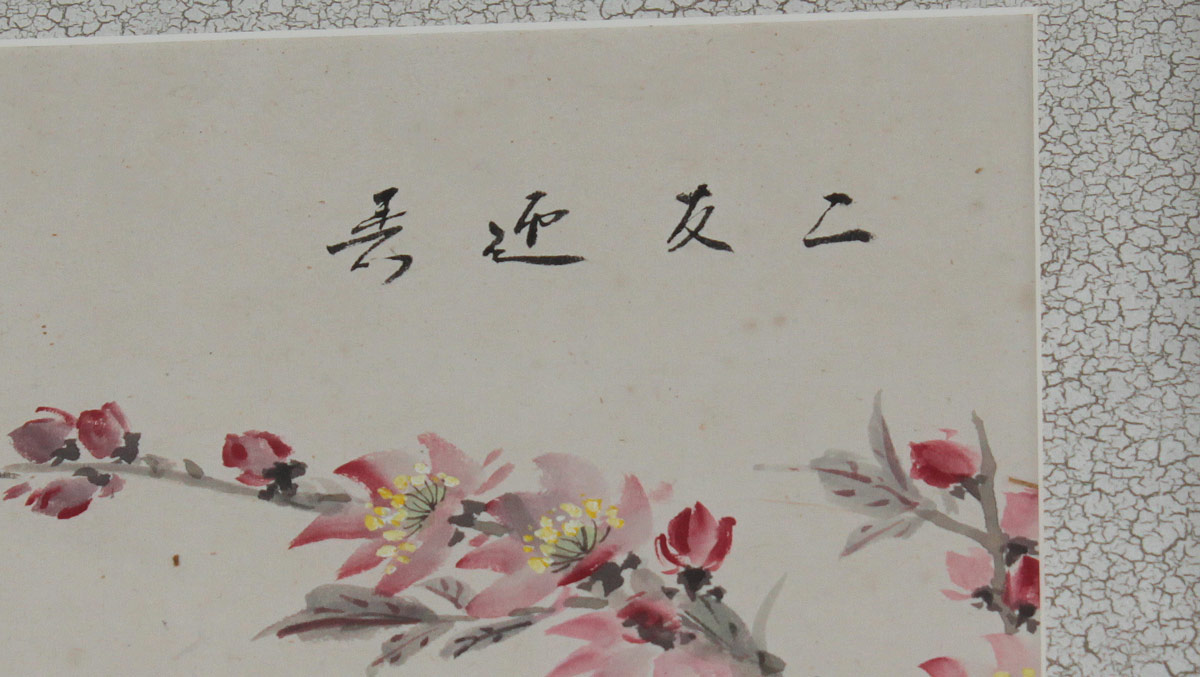 二友迎春